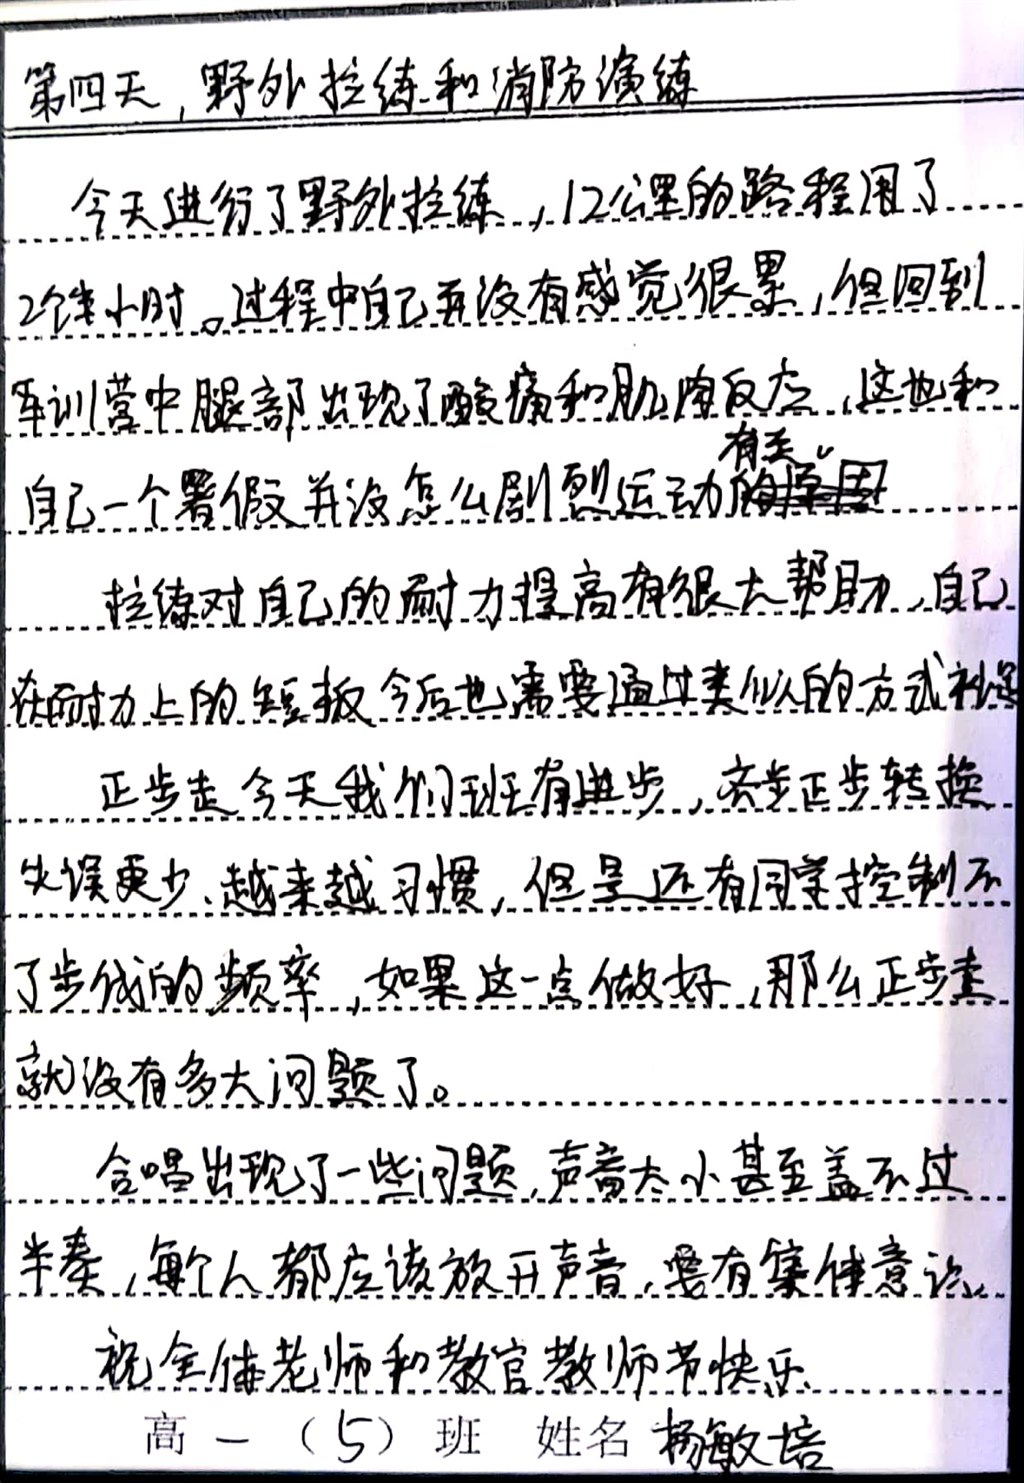 第四天，野外拉练和消防演练
今天进行了野外拉练，12公里的路程用了
2个半小时。过程中自己并没有感觉很累，但回到
军训营中腿部出现了酸痛和肌肉反应，这也和
有关。
自己一个暑假并没怎么剧烈运动的原因
拉练对自己的耐力提高有很大帮助，自己
在耐力上的短板今后也需要通过类似的方式补足
正步走今天我们班有进步，齐步正步转换
失误更少、越来越习惯，但是还有同学控制不
了步伐的频率，如果这一点做好，那么正步走
就没有多大问题了。
合唱出现了一些问题，声音太小甚至盖不过
半奏，每个人都应该放开声音，要有集体意识。
祝全体老师和教官教师节快乐
高一（5）班 姓名 杨敏培